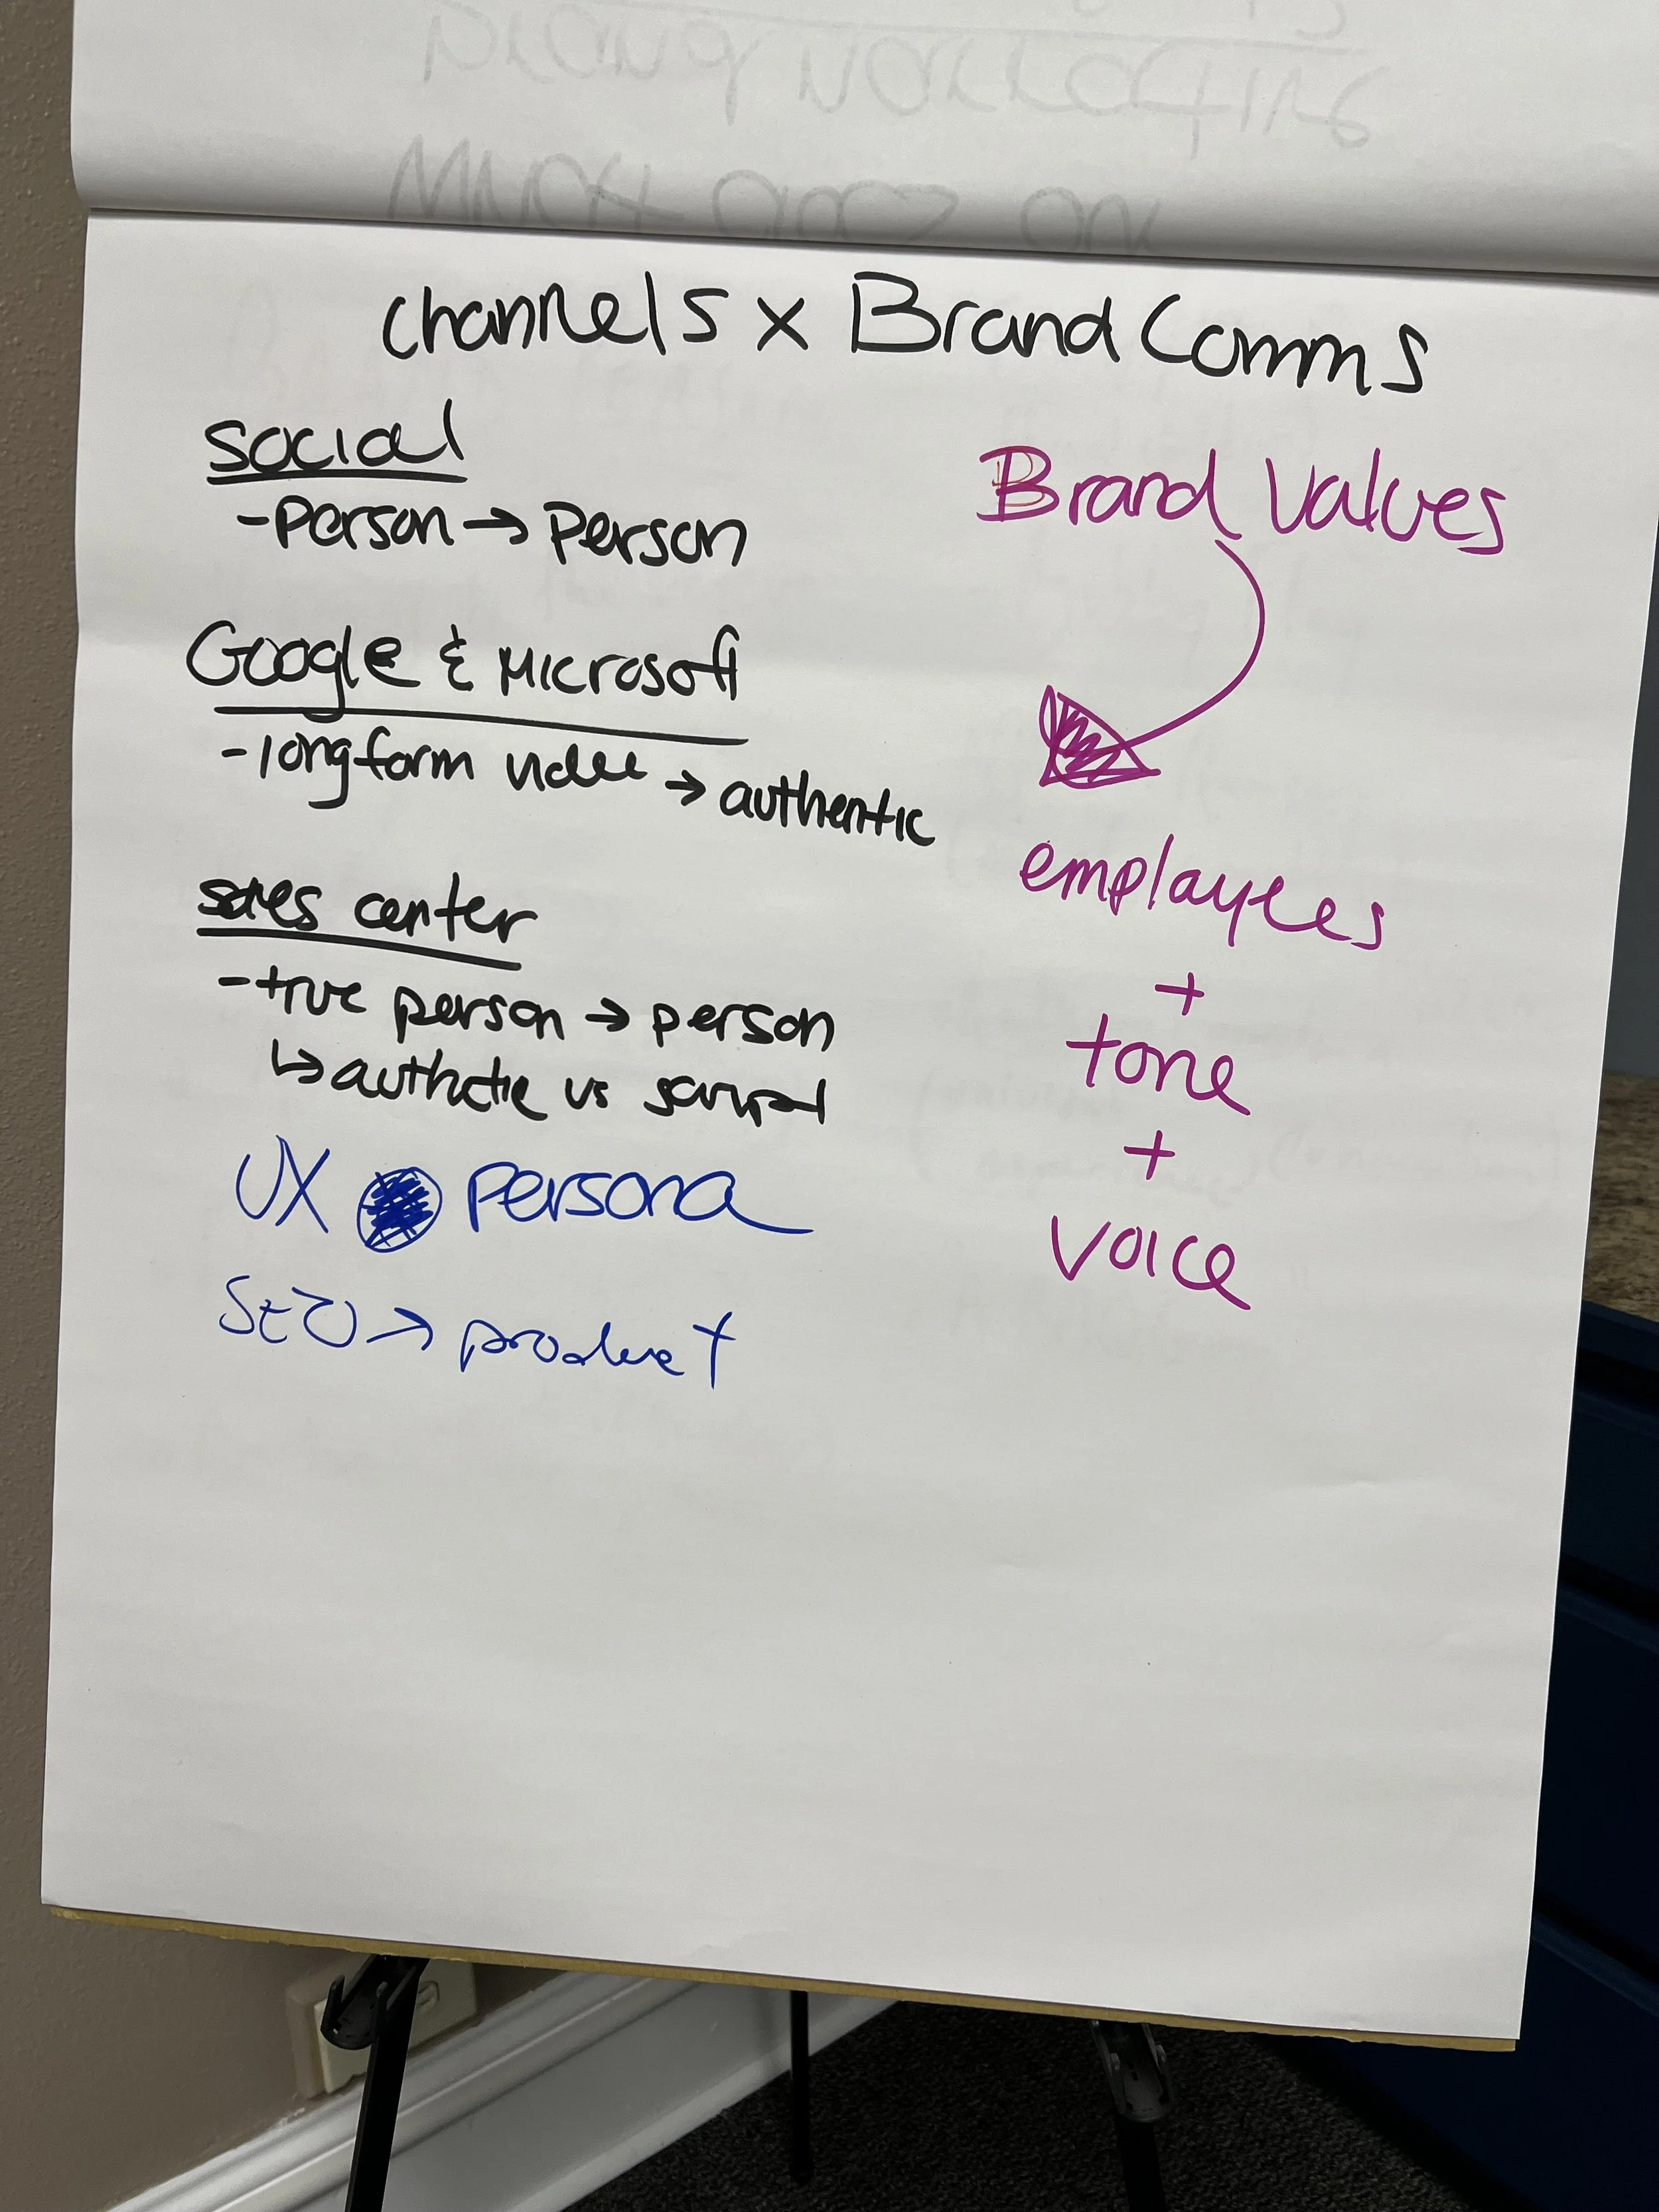 Channels x Brand Comms
Social
- Person → Person
Google & Microsoft
- longform video → authentic
sales center
- true person → person
↳ authentic vs script
UX persona
SEO → product
Brand Values
employees
+
tone
+
voice